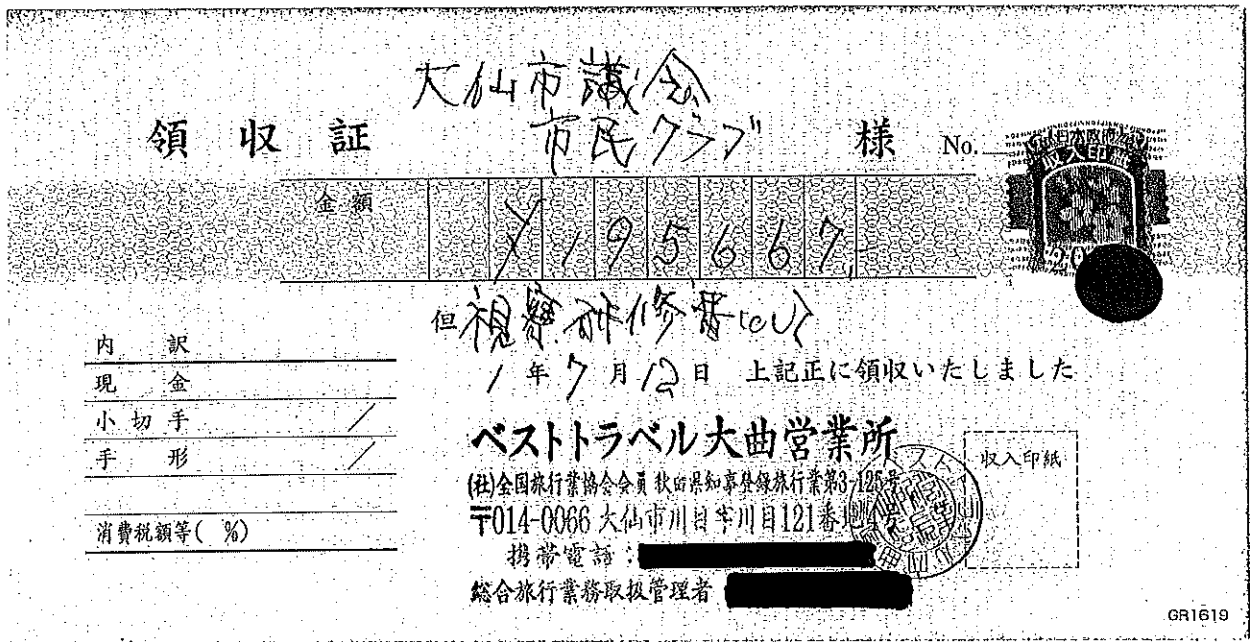 大仙市議会
領収証 市民クラブ 様 No.
収入印紙
金額 ¥195667.-
但 視察研修費として
1年7月12日 上記正に領収いたしました
内訳
現金
小切手 /
手形 /
消費税額等( %)
ベストトラベル大曲営業所
(社)全国旅行業協会会員 秋田県知事登録旅行業第3-125号
〒014-0066 大仙市川目字川目121番地4
携帯電話:
総合旅行業務取扱管理者
収入印紙
GR1619